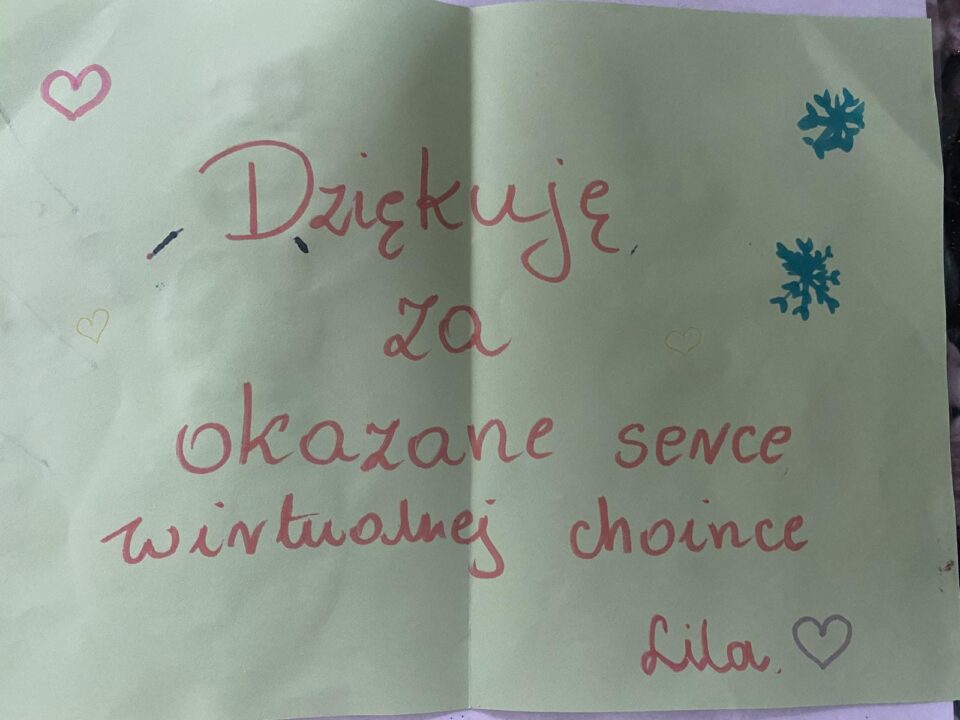 Dziękuję
za
okazane serce
wirtualnej choince
Lila.